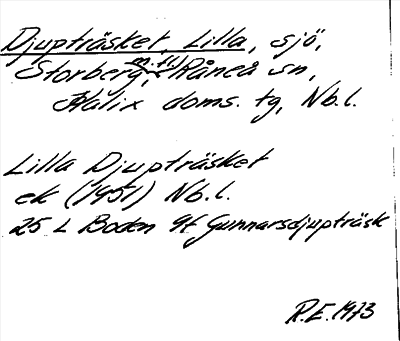 Djupträsket, Lilla, sjö,
Storberg, m. fl.) Råneå sn,
Kalix doms. tg, Nb.l.
Lilla Djupträsket
ek (1951) Nb.l.
25 L Boden 9f Gunnarsdjupträsk
R.E. 1973